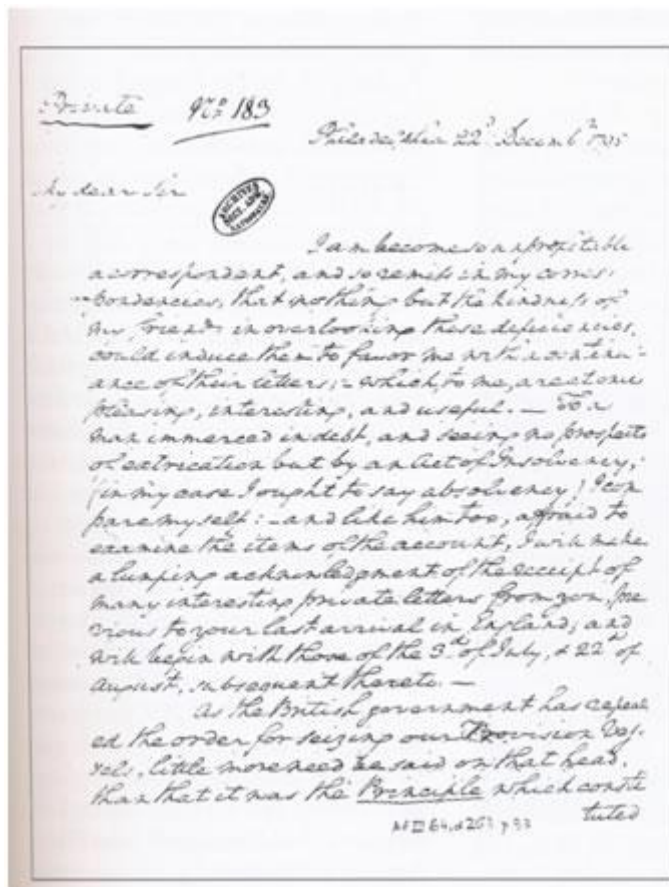 Private Nº 183
Philadelphia 22d Decembr 1795
My dear Sir
ARCHIVES
NATIONALES
I am become so unprofitable
a correspondent, and so remiss in my corres-
pondencies, that nothing but the kindness of
my friends in overlooking these deficiencies,
could induce them to favor me with a continu-
ance of their letters; - which, to me, are at once
pleasing, interesting, and useful. — To a
man immerced in debt, and seeing no prospect
of extrication but by an Act of Insolvency,
(in my case I ought to say absolvency) I com
pare myself: - and like him too, affraid to
examine the items of the account, I will make
a lumping acknowledgment of the receipt of
many interesting private letters from you, pre
vious to your last arrival in England; and
will begin with those of the 3d of July, & 22d of
August, subsequent thereto. —
As the British government has repeal
ed the order for seizing our Provision Ves-
sels, little more need be said on that head,
than that it was the Principle which consti
tuted
AF III 64, d 263 p 93